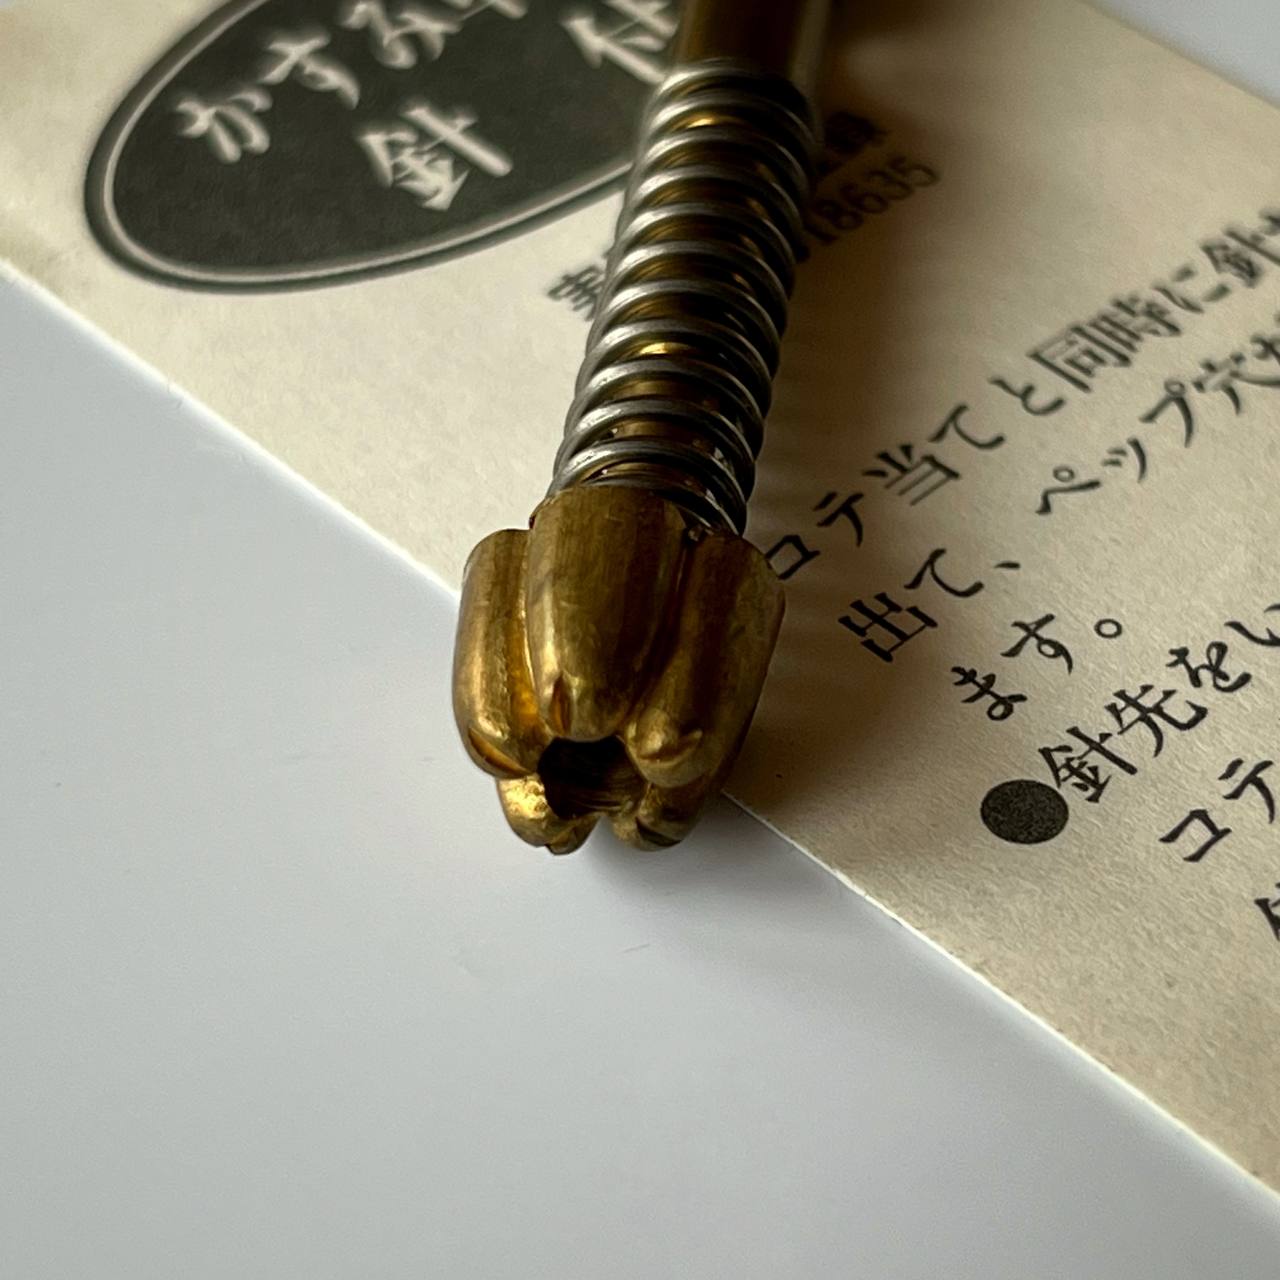 かすみ草
針 付
実
18635
コテ当てと同時に針が
出て、ペップ穴が
ます。
●針先をい
コテ